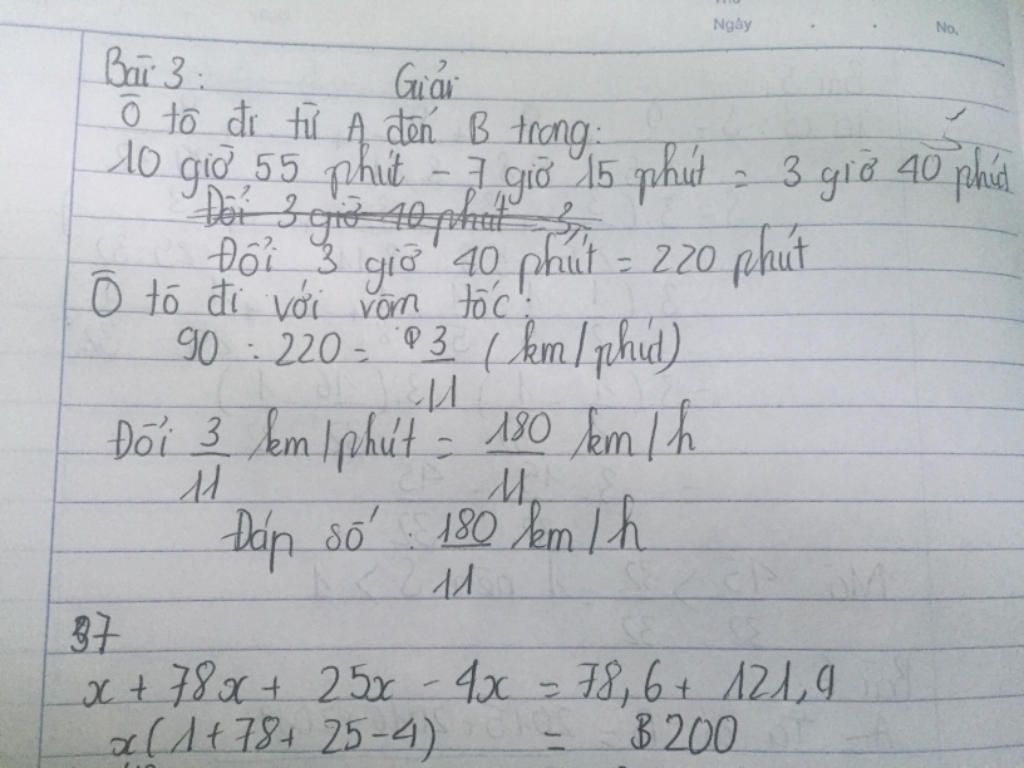 Ngày . . No.
Bài 3: Giải
Ô tô đi từ A đến B trong:
10 giờ 55 phút - 7 giờ 15 phút = 3 giờ 40 phút
Đổi 3 giờ 40 phút = 3
Đổi 3 giờ 40 phút = 220 phút
Ô tô đi với vâm tốc:
90 : 220 = 3/11 (km/phút)
Đổi 3/11 km/phút = 180/11 km/h
Đáp số : 180/11 km/h
37
x + 78x + 25x - 4x = 78,6 + 121,4
x(1+78+ 25-4) = 200